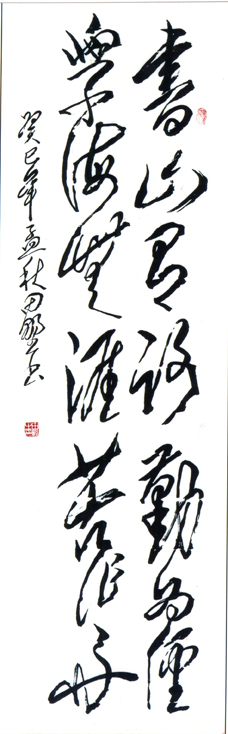 書山有路勤为徑
學海無涯苦作舟
癸巳年孟秋田鵬書